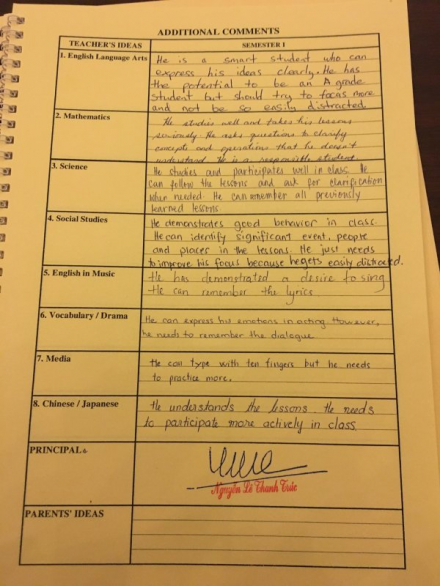 ADDITIONAL COMMENTS
TEACHER'S IDEAS
SEMESTER I
1. English Language Arts
He is a smart student who can
express his ideas clearly. He has
the potential to be an A grade
student but should try to focus more
and not be so easily distracted.
2. Mathematics
He studies well and takes his lessons
seriously. He asks questions to clarify
concepts and operations that he doesn't
understand. He is a responsible student.
3. Science
He studies and participates well in class. He
can follow the lessons and ask for clarification
when needed. He can remember all previously
learned lessons.
4. Social Studies
He demonstrates good behavior in class.
He can identify significant event, people
and places in the lessons. He just needs
to improve his focus because he gets easily distracted.
5. English in Music
He has demonstrated a desire to sing
He can remember the lyrics
6. Vocabulary / Drama
He can express his emotions in acting. However,
he needs to remember the dialogue
7. Media
He can type with ten fingers but he needs
to practice more.
8. Chinese / Japanese
He understands the lessons. He needs
to participate more actively in class.
PRINCIPAL
Nguyễn Lê Thanh Trúc
PARENTS' IDEAS